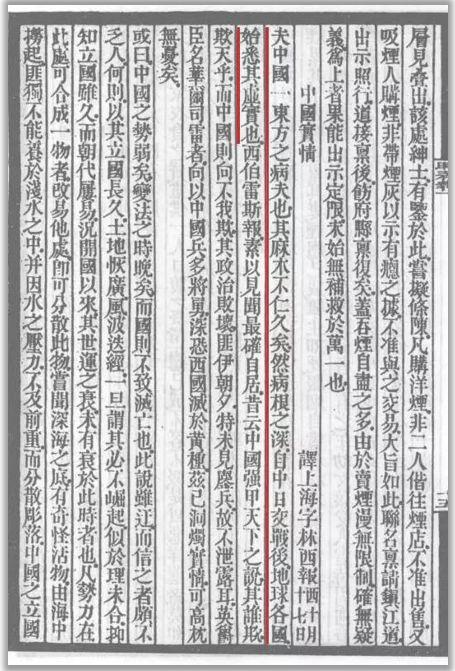 層見叠出該處紳士有鑒於此嘗擬條陳凡購洋煙非二人偕往煙店不准出售又
吸煙人購煙非帶煙灰以示有癮之據不准與之交易大旨如此聯名稟請鎮江道
出示照行道接稟後飭府縣稟復矣蓋吞煙自盡之多由於賣煙漫無限制確無疑
義爲上者果能出示定限未始無補救於萬一也
中國實情 譯上海字林西報
夫中國一東方之病夫也其麻木不仁久矣然病根之深自中日交戰後地球各國
始悉其虛實也西伯雷斯報素以見聞最確自居昔云中國强甲天下之說其誰欺
欺天乎而中國則向不我欺其政治敗壞匪伊朝夕特未見鏖兵故不泄露耳英爵
臣名華爾司雷者向以中國兵多將勇深恐西國滅於黃種茲已洞燭實情可高枕
無憂矣
或曰中國之勢弱矣變法之時晚矣而國則不致滅亡也此說雖迂而信之者頗不
乏人何則以其立國長久土地恢廣風波迭經一旦謂其必不崛起似於理未合抑
知立國雖久而朝代屢易況開國以來其世運之衰未有衰於此時者也凡勢力在
此處可合成一物者改易他處卽可分散此物嘗聞深海之底有奇怪活物由海中
撈起匪獨不能養於淺水之中并因水之壓力不及前重而分散彫落中國之立國